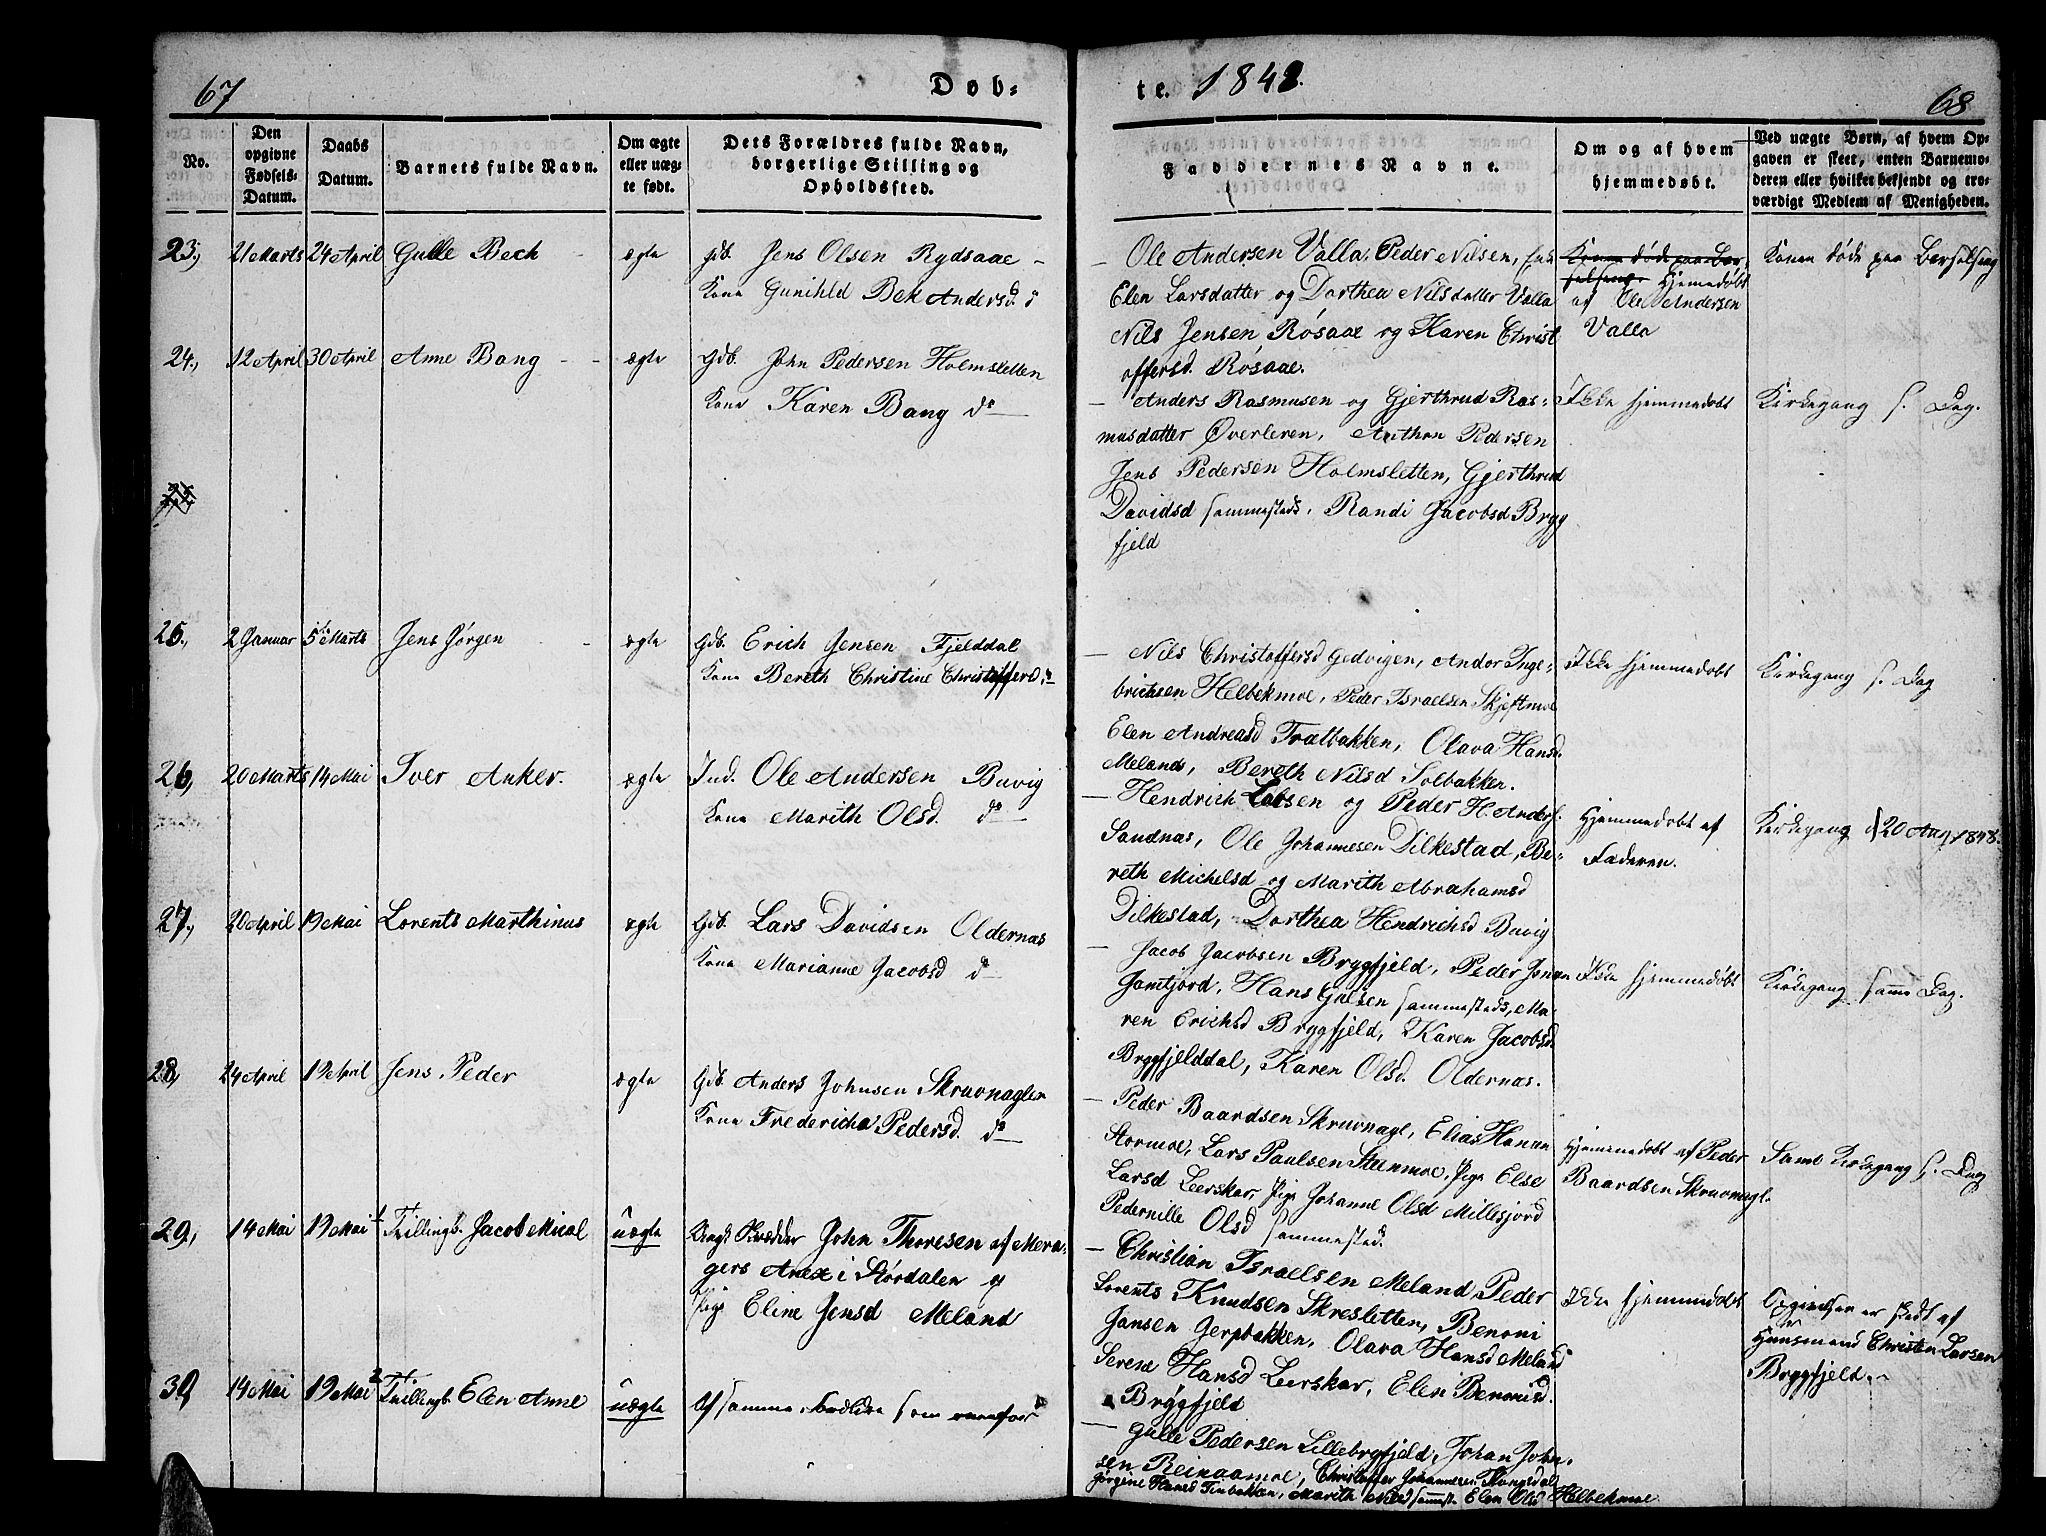 67
Døb-
te. 1848.
68
No.
Den
opgivne
Fødsels-
Datum.
Daabs
Datum.
Barnets fulde Navn.
Om ægte
eller uæg-
te født.
Dets Forældres fulde Navn,
borgerlige Stilling og
Opholdssted.
Faddernes Navne.
Om og af hvem
hjemmedøbt.
Ved uægte Børn, af hvem Op-
gaven er skeet, enten Barnemo-
deren eller hvilket bekjendt og tro-
værdigt Medlem af Menigheden.
23, 21 Marts 24 April Gulle Bech - ægte Gdb. Jens Olsen Rydsaae -
Kone Gunihld Bek Andersd. d
- Ole Andersen Valla, Peder Nilsen,
Elen Larsdatter og Dorthea Nilsdatter Valla
Nils Jensen Røsaae og Karen Christ
offersd. Røsaae.
Hjemedøbt
af Ole Andersen
Valla
Konen døde paa Barselseng
24, 12 April 30 April Anne Bang - - ægte Gdb. John Pedersen Holmsletten
Kone Karen Bang do
- Anders Rasmusen og Gjerthrud Ras-
musdatter Øverleren, Anthon Pedersen
Jens Pedersen Holmsletten, Gjerthrud
Davidsd sammesteds, Randi Jacobsd Brygg
fjeld
Ikke hjemmedøbt
Kirkegang s. Dag.
25, 2 Januar 5te Marts Jens Jørgen - ægte Gdb. Erich Jensen Fjelddal
Kone Bereth Christine Christofferd. do
- Nils Christoffersd Gedvigen, Andor Inge-
brichsen Helbekmoe, Peder Israelsen Skjeftmoe
Elen Andreasd Trætbakken, Olava Hansd.
Meland, Bereth Nilsd Solbakken.
Ikke hjemmedøbt
Kirkegang s. Dag
26, 20 Marts 14 Mai Iver Anker. ægte Ind. Ole Andersen Buvig
Kone Marith Olsd. do
- Hendrich Larsen og Peder H. Anders.
Sandnas, Ole Johannesen Dilkestad, Be-
reth Michelsd og Marith Abrahamsd
Dilkestad, Dorthea Hendrichsd Buvig
Hjemmedøbt af
Faderen.
Kirkegang d 20 Aug 1848.
27, 20 April 19 Mai Lorents Marthinus ægte Gdb. Lars Davidsen Oldernas
Kone Marianne Jacobsd do
- Jacob Jacobsen Bryggfjeld, Peder Jonsen
Jamtjord, Hans Galsen sammesteds, Ma-
ren Erichsd Bryggfjeld, Karen Jacobsd.
Bryggfjelddal, Karen Olsd. Oldernas.
Ikke hjemmedøbt
Kirkegang samme Dag.
28, 24 April 19 April Jens Peder ægte Gdb. Anders Johnsen Skravnaglen
Kone Fredericha Pedersd. do
- Peder Baardsen Skruvnagl, Elias Hansen
Stormoe, Lars Paulsen Steenmoe, Pige Else
Larsd Leerskar, Pige Johanne Olsd Millesjord
Pedernille Olsd sammested.
Hjemmedøbt af Peder
Baardsen Skruvnagl.
Samt Kirkegang s. Dag
29, 14 Mai 19 Mai 1 Tvillingb. Jacob Mical uægte John Thoresen af Mera-
gers Anex i Størdalen og
Pige Eline Jensd Meland
- Christian Israelsen Meland, Peder
Lorents Knudsen Skresletten, Benoni
Jansen Gerpbakken, Olava Hansd Meland
Serene Hansd Leerskar, Elen Benonisd.
Bryggfjeld
Ikke hjemmedøbt
Opgivelsen er skedt af
Huusmand Christen Larsen
Bryggfjeld.
30 14 Mai 19 Mai 2 Tvillingb. Elen Anne uægte Af samme Forældre som ovenfor
- Gulle Pedersen Lillebrygfjeld, Johan John-
sen Reinaamoe, Christoffer Johannesen Plangsdal
Jørgine Hansd Tinbakken, Marith Nilsd sammest. Elen Olsd Helbekmoe